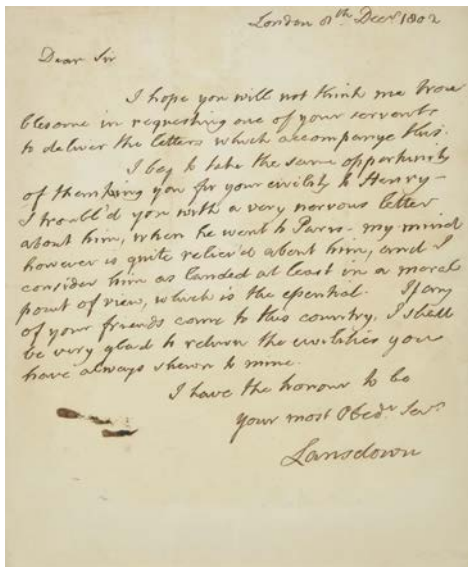 London 8th Decr. 1802
Dear Sir
I hope you will not think me trou
blesome in requesting one of your servants
to deliver the letters which accompanye this.
I beg to take the same opportunity
of thanking you for your civility to Henry -
I troubl'd you with a very nervous letter
about him, when he went to Paris - my mind
however is quite reliev'd about him, and I
consider him as landed at least in a moral
point of view, which is the essential. If any
of your friends come to this country, I shall
be very glad to return the civilities you
have always shewn to mine.
I have the honour to be
your most Obedt. Sert.
Lansdown